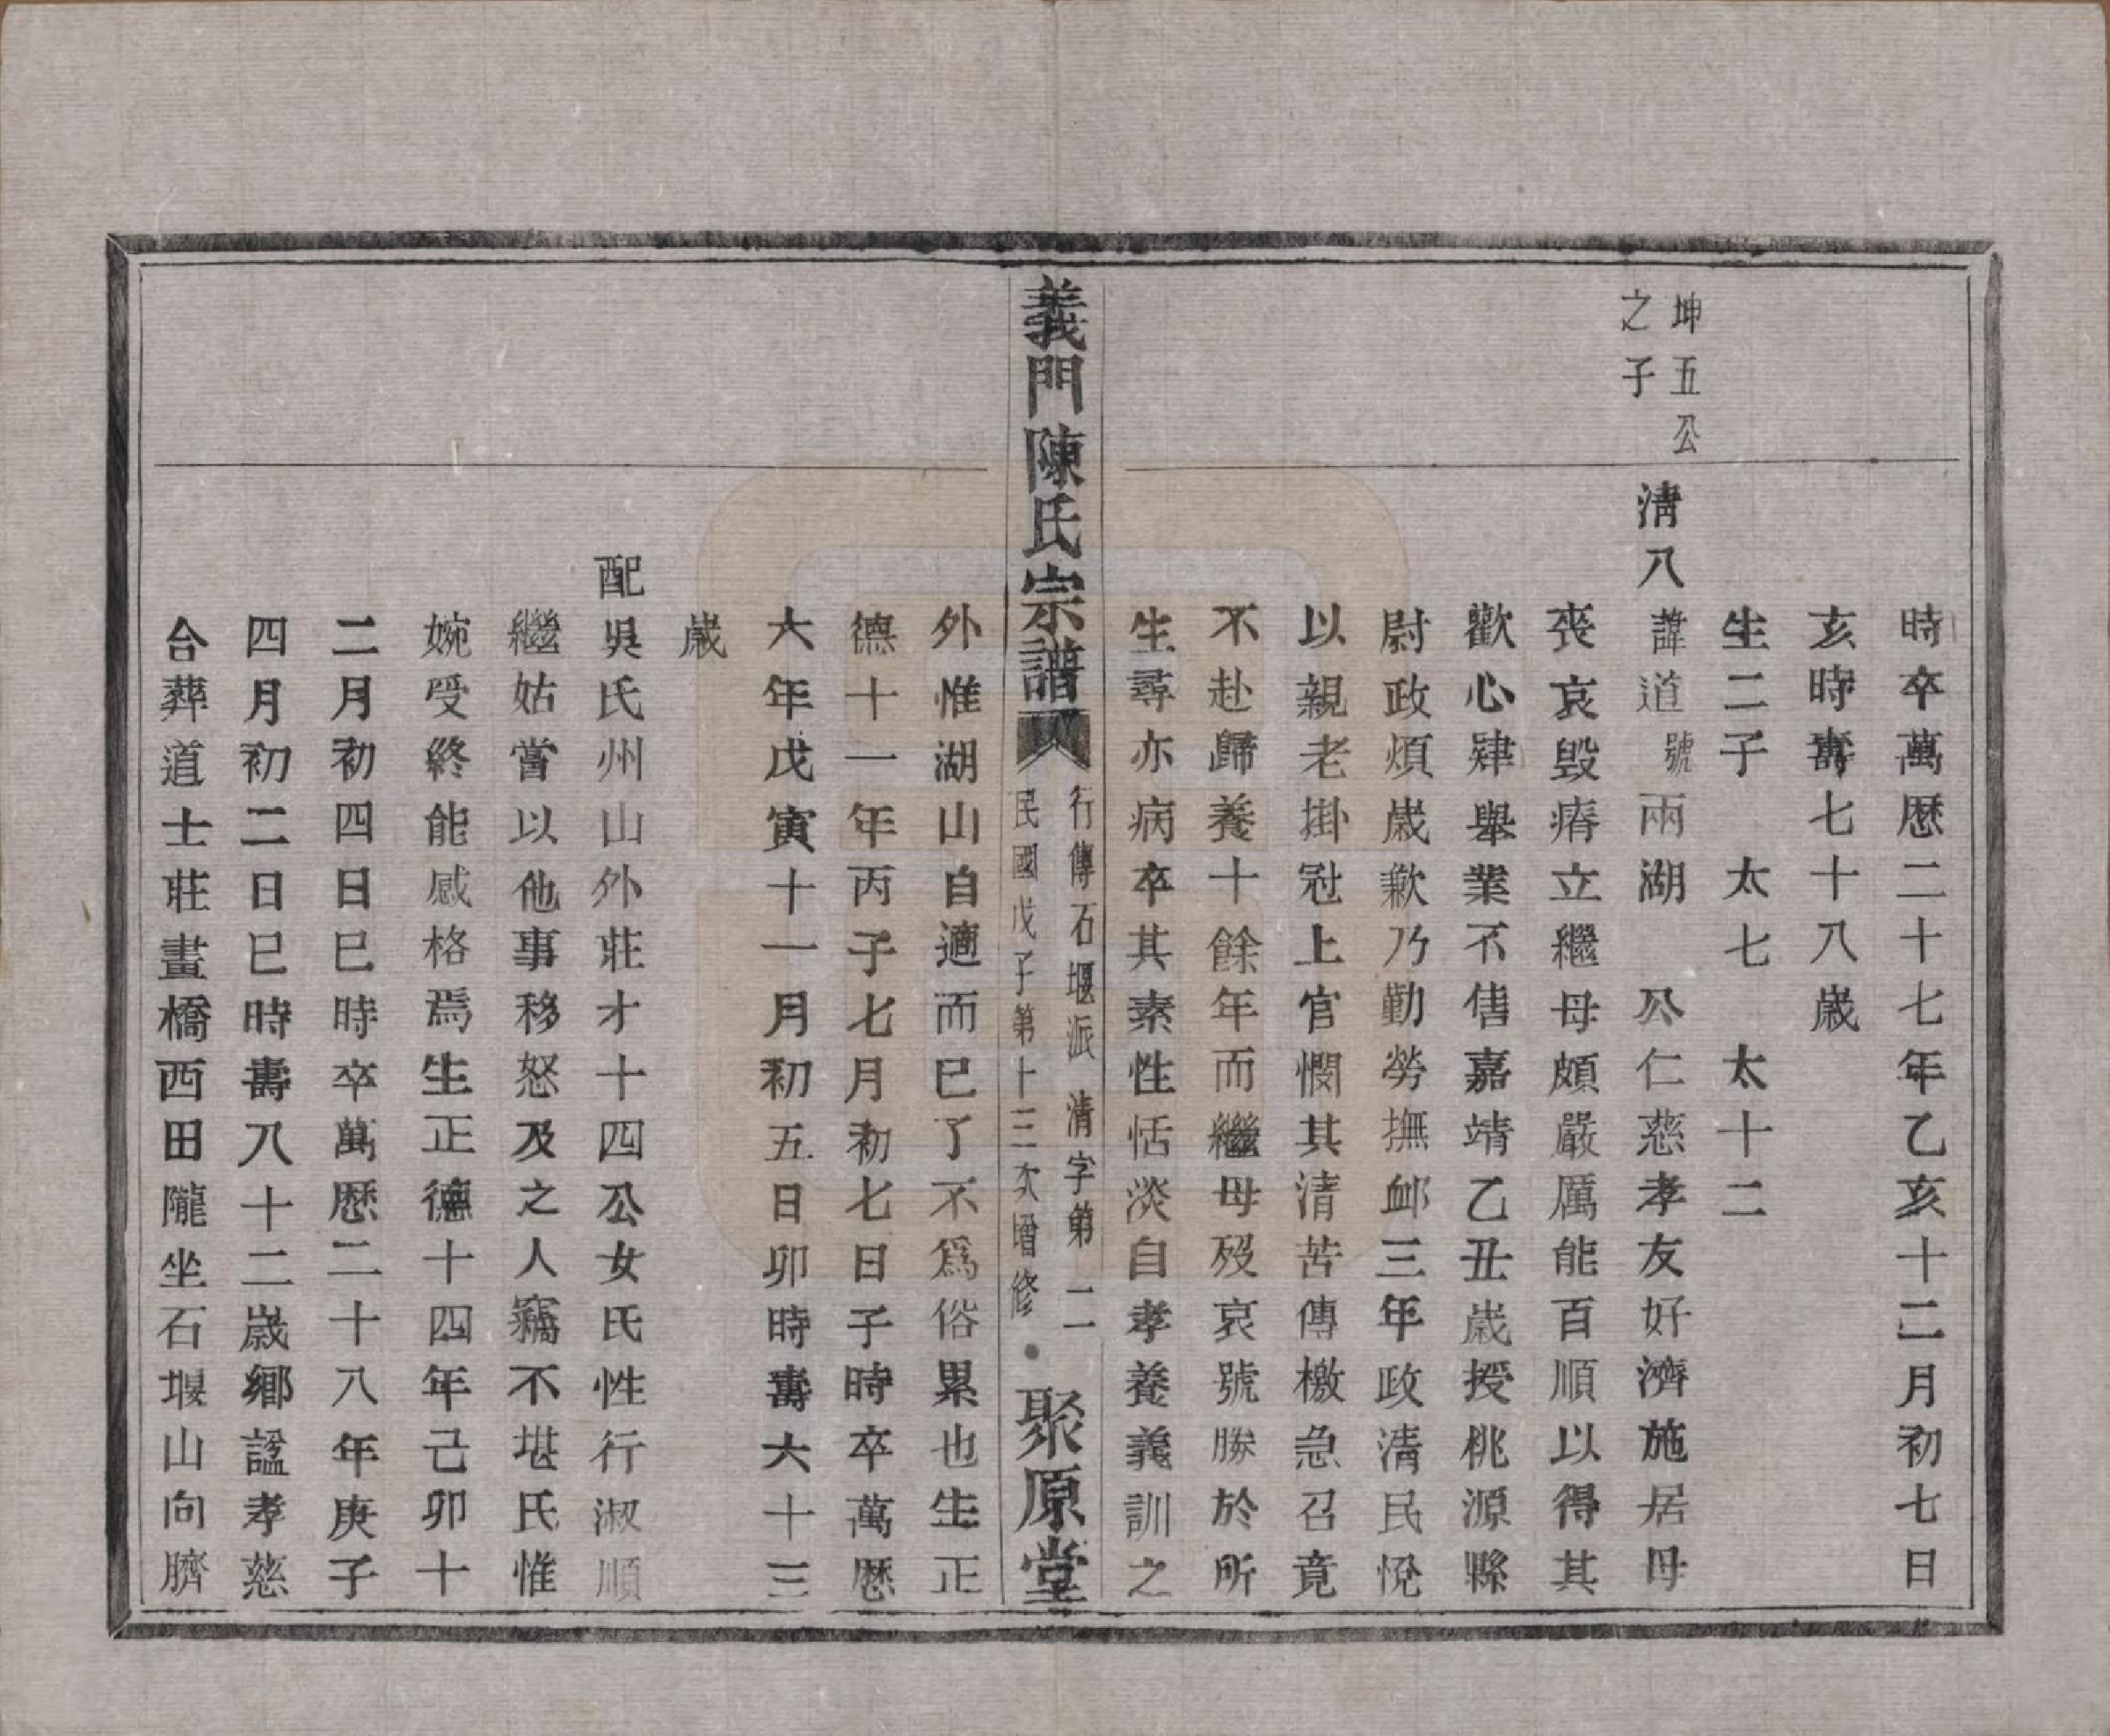 時卒萬歷二十七年乙亥十二月初七日
亥時壽七十八歲
生二子　太七　太十二
坤五公
之子
清八　諱道　號兩湖　公仁慈孝友好濟施居母
喪哀毀瘠立繼母頗嚴厲能百順以得其
歡心肄舉業不售嘉靖乙丑歲授桃源縣
尉政煩歲歉乃勤勞撫卹三年政清民悅
以親老掛冠上官憫其清苦傳檄急召竟
不赴歸養十餘年而繼母歿哀號勝於所
生尋亦病卒其素性恬淡自孝養義訓之
義門陳氏宗譜
行傳石堰派　清字第　二
民國戊子第十三次增修
聚原堂
外惟湖山自適而已了不爲俗累也生正
德十一年丙子七月初七日子時卒萬歷
六年戊寅十一月初五日卯時壽六十三
歲
配吳氏州山外莊才十四公女氏性行淑順
繼姑嘗以他事移怒及之人竊不堪氏惟
婉受終能感格焉生正德十四年己卯十
二月初四日巳時卒萬歷二十八年庚子
四月初二日巳時壽八十二歲鄉諡孝慈
合葬道士莊畫橋西田隴坐石堰山向臍